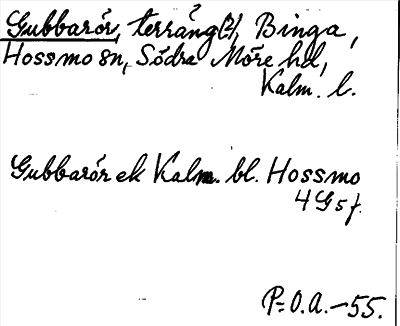 Gubbarör, terräng(?), Binga,
Hossmo sn, Södra Möre hd,
Kalm. l.
Gubbarör ek Kalm. bl. Hossmo
4G5f.
P=O.A.-55.